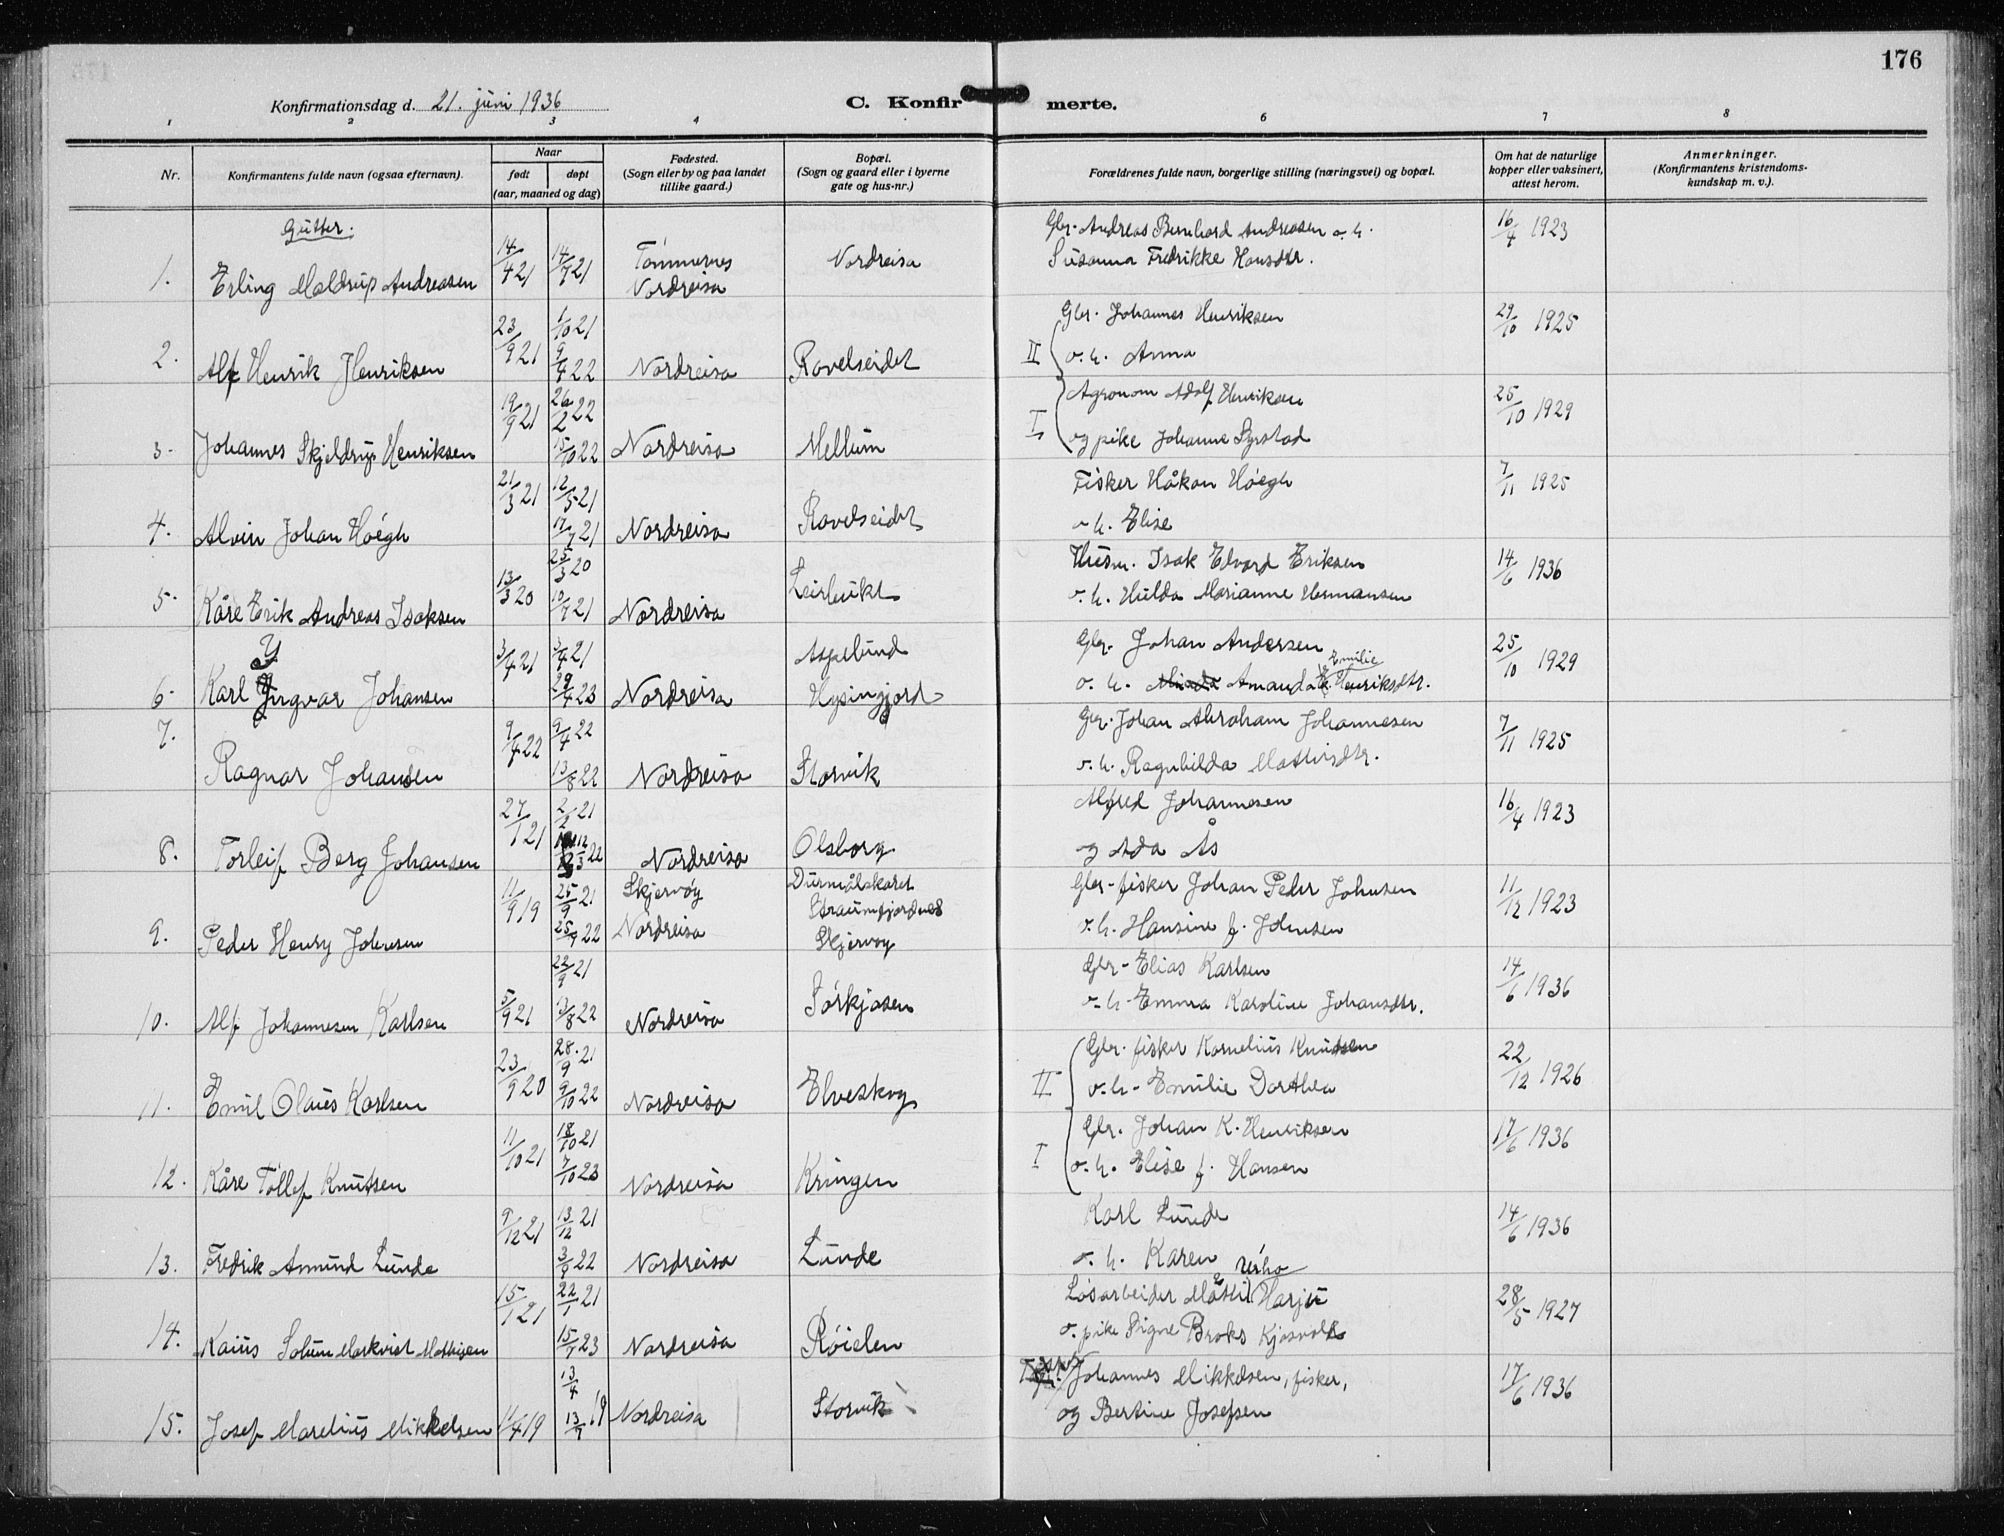 176
Konfirmationsdag d. 21. juni 1936
C. Konfirmerte.
1 2 3 4 6 7 8
Nr.
Konfirmantens fulde navn (ogsaa efternavn).
Naar
født døpt
(aar, maaned og dag)
Fødested.
(Sogn eller by og paa landet
tillike gaard.)
Bopæl.
(Sogn og gaard eller i byerne
gate og hus-nr.)
Forældrenes fulde navn, borgerlige stilling (næringsvei) og bopæl.
Om hat de naturlige
kopper eller vaksinert,
attest herom.
Anmerkninger.
(Konfirmantens kristendoms-
kundskap m. v.).
Gutter.
1. Erling Meldrup Andreasen 14/4 21 14/7 21 Tömmernes Nordreisa Nordreisa
Gbr. Andreas Bernhard Andreasen o. h.
Susanna Fredrikke Hansdtr.
16/4 1923
2. Alf Henrik Henriksen 23/9 21 1/10 21 9/4 22 Nordreisa Ravelseidet
II Gbr. Johannes Henriksen
o. h. Anna
29/10 1925
3. Johannes Skjeldrup Henriksen 19/9 21 26/2 22 15/10 22 Nordreisa Mellum
I Agronom Adolf Henriksen
og pike Johanne Syrstad
25/10 1929
4. Alvin Johan Höegh 21/3 21 12/5 21 17/7 21 Nordreisa Ravelseidet
Fisker Håkon Höegh
o. h. Elise
7/11 1925
5. Kåre Erik Andreas Isaksen 13/3 20 25/3 20 10/7 21 Nordreisa Leirbukt
Husm. Isak Edvard Eriksen
o. h. Hulda Marianne Hermansen
14/6 1936
Y
6. Karl Yngvar Johansen 3/4 21 3/4 21 29/4 23 Nordreisa Aspelund
Hysingjord
Gbr. Johan Andersen
Emilie
o. h. Amanda Henriksdtr.
25/10 1929
7. Ragnar Johansen 9/4 22 9/4 22 13/8 22 Nordreisa Storvik
Gbr. Johan Abraham Johannesen
o. h. Ragnhilda Mathisdtr.
7/11 1925
8. Torleif Berg Johansen 27/1 21 2/2 21 12/3 22 Nordreisa Olsborg
Alfred Johannesen
og Ada Ås
16/4 1923
9. Peder Henry Johnsen 11/9 19 25/9 21 25/9 22 Skjervöy Nordreisa Durmålskaret
Straumfjordnes
Skjervøy
Gbr-fisker Johan Peder Johnsen
o. h. Hansine f. Johnsen
11/12 1923
10. Alf Johannesen Karlsen 5/9 21 22/9 21 13/8 22 Nordreisa Sörkjosen
Gbr- Elias Karlsen
o. h- Emma Karoline Johansdtr.
14/6 1936
11. Emil Olaus Karlsen 23/9 20 28/9 21 9/10 22 Nordreisa Elveskog
II Gbr. fisker Kornelius Knudsen
o. h- Emilie Dorthea
22/12 1926
12. Kåre Tollef Knutsen 11/10 21 18/10 21 7/10 23 Nordreisa Kringen
I Gbr. Johan K. Henriksen
o. h. Elise f. Hansen
17/6 1936
13. Fredrik Amund Lunde 9/12 21 13/12 21 3/9 22 Nordreisa Lunde
Karl Lunde
o. h. Karen
14/6 1936
14. Kaius Solum Markvist Mathisen 15/1 21 22/1 21 15/7 23 Nordreisa Röielen
Urho
Lösarbeider Matti Harju
o. pike Signe Broks Kjosvold
28/5 1927
15. Josef Marelius Mikkelsen 11/4 19 13/4 13/7 19 Nordreisa Storvik
Johannes Mikkelsen, fisker,
og Bertine Josefsen
17/6 1936